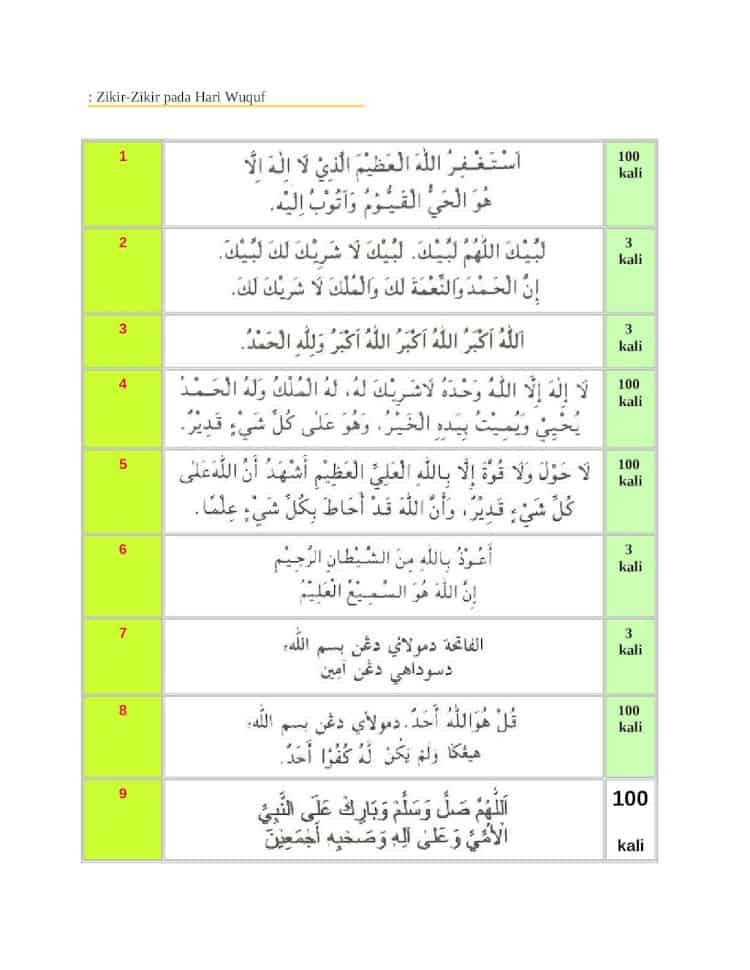 : Zikir-Zikir pada Hari Wuquf
1
اَسْتَغْفِرُ اللهَ الْعَظِيْمَ الَّذِيْ لَا اِلٰهَ اِلَّا
هُوَ الْحَيُّ الْقَيُّوْمُ وَاَتُوْبُ إِلَيْهِ.
100
kali
2
لَبَّيْكَ اللّٰهُمَّ لَبَّيْكَ. لَبَّيْكَ لَا شَرِيْكَ لَكَ لَبَّيْكَ.
إِنَّ الْحَمْدَ وَالنِّعْمَةَ لَكَ وَالْمُلْكَ لَا شَرِيْكَ لَكَ.
3
kali
3
اَللهُ اَكْبَرُ اللهُ اَكْبَرُ اللهُ اَكْبَرُ وَلِلّٰهِ الْحَمْدُ.
3
kali
4
لَا إِلٰهَ إِلَّا اللهُ وَحْدَهُ لَاشَرِيْكَ لَهُ، لَهُ الْمُلْكُ وَلَهُ الْحَمْدُ
يُحْيِيْ وَيُمِيْتُ بِيَدِهِ الْخَيْرُ، وَهُوَ عَلٰى كُلِّ شَيْءٍ قَدِيْرٌ.
100
kali
5
لَا حَوْلَ وَلَا قُوَّةَ إِلَّا بِاللهِ الْعَلِيِّ الْعَظِيْمِ أَشْهَدُ أَنَّ اللهَ عَلٰى
كُلِّ شَيْءٍ قَدِيْرٌ، وَأَنَّ اللهَ قَدْ أَحَاطَ بِكُلِّ شَيْءٍ عِلْمًا.
100
kali
6
أَعُوْذُ بِاللهِ مِنَ الشَّيْطَانِ الرَّجِيْمِ
إِنَّ اللهَ هُوَ السَّمِيْعُ الْعَلِيْمُ
3
kali
7
الفاتحة دمولاءي دڠن بسم الله،
دسوداهي دڠن آمين
3
kali
8
قُلْ هُوَاللهُ أَحَدٌ. دمولاءي دڠن بسم الله،
هيڠݢا وَلَمْ يَكُنْ لَّهُ كُفُوًا أَحَدٌ.
100
kali
9
اَللّٰهُمَّ صَلِّ وَسَلِّمْ وَبَارِكْ عَلَى النَّبِيِّ
الْأُمِّيِّ وَعَلىٰ آلِهِ وَصَحْبِهِ أَجْمَعِيْنَ
100
kali